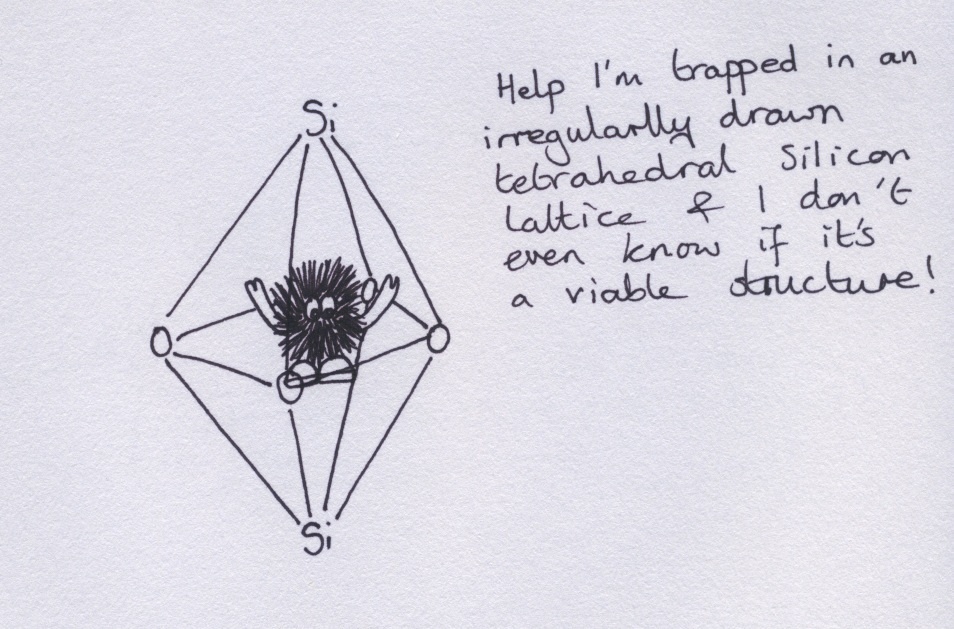 Si
O
O
O
O
Si
Help I'm trapped in an
irregularlly drawn
tetrahedral Silicon
Lattice & I don't
even know if it's
a viable structure!